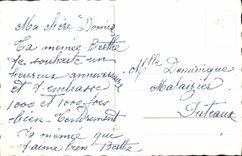 Ma chère Domie
Ta mémée Berthe
te souhaite un
heureux anniversaire
et t'embrasse
1000 et 1000 fois
bien tendrement
ta mémée qui
t'aime bien Berthe
Mlle Dominique
Puteaux